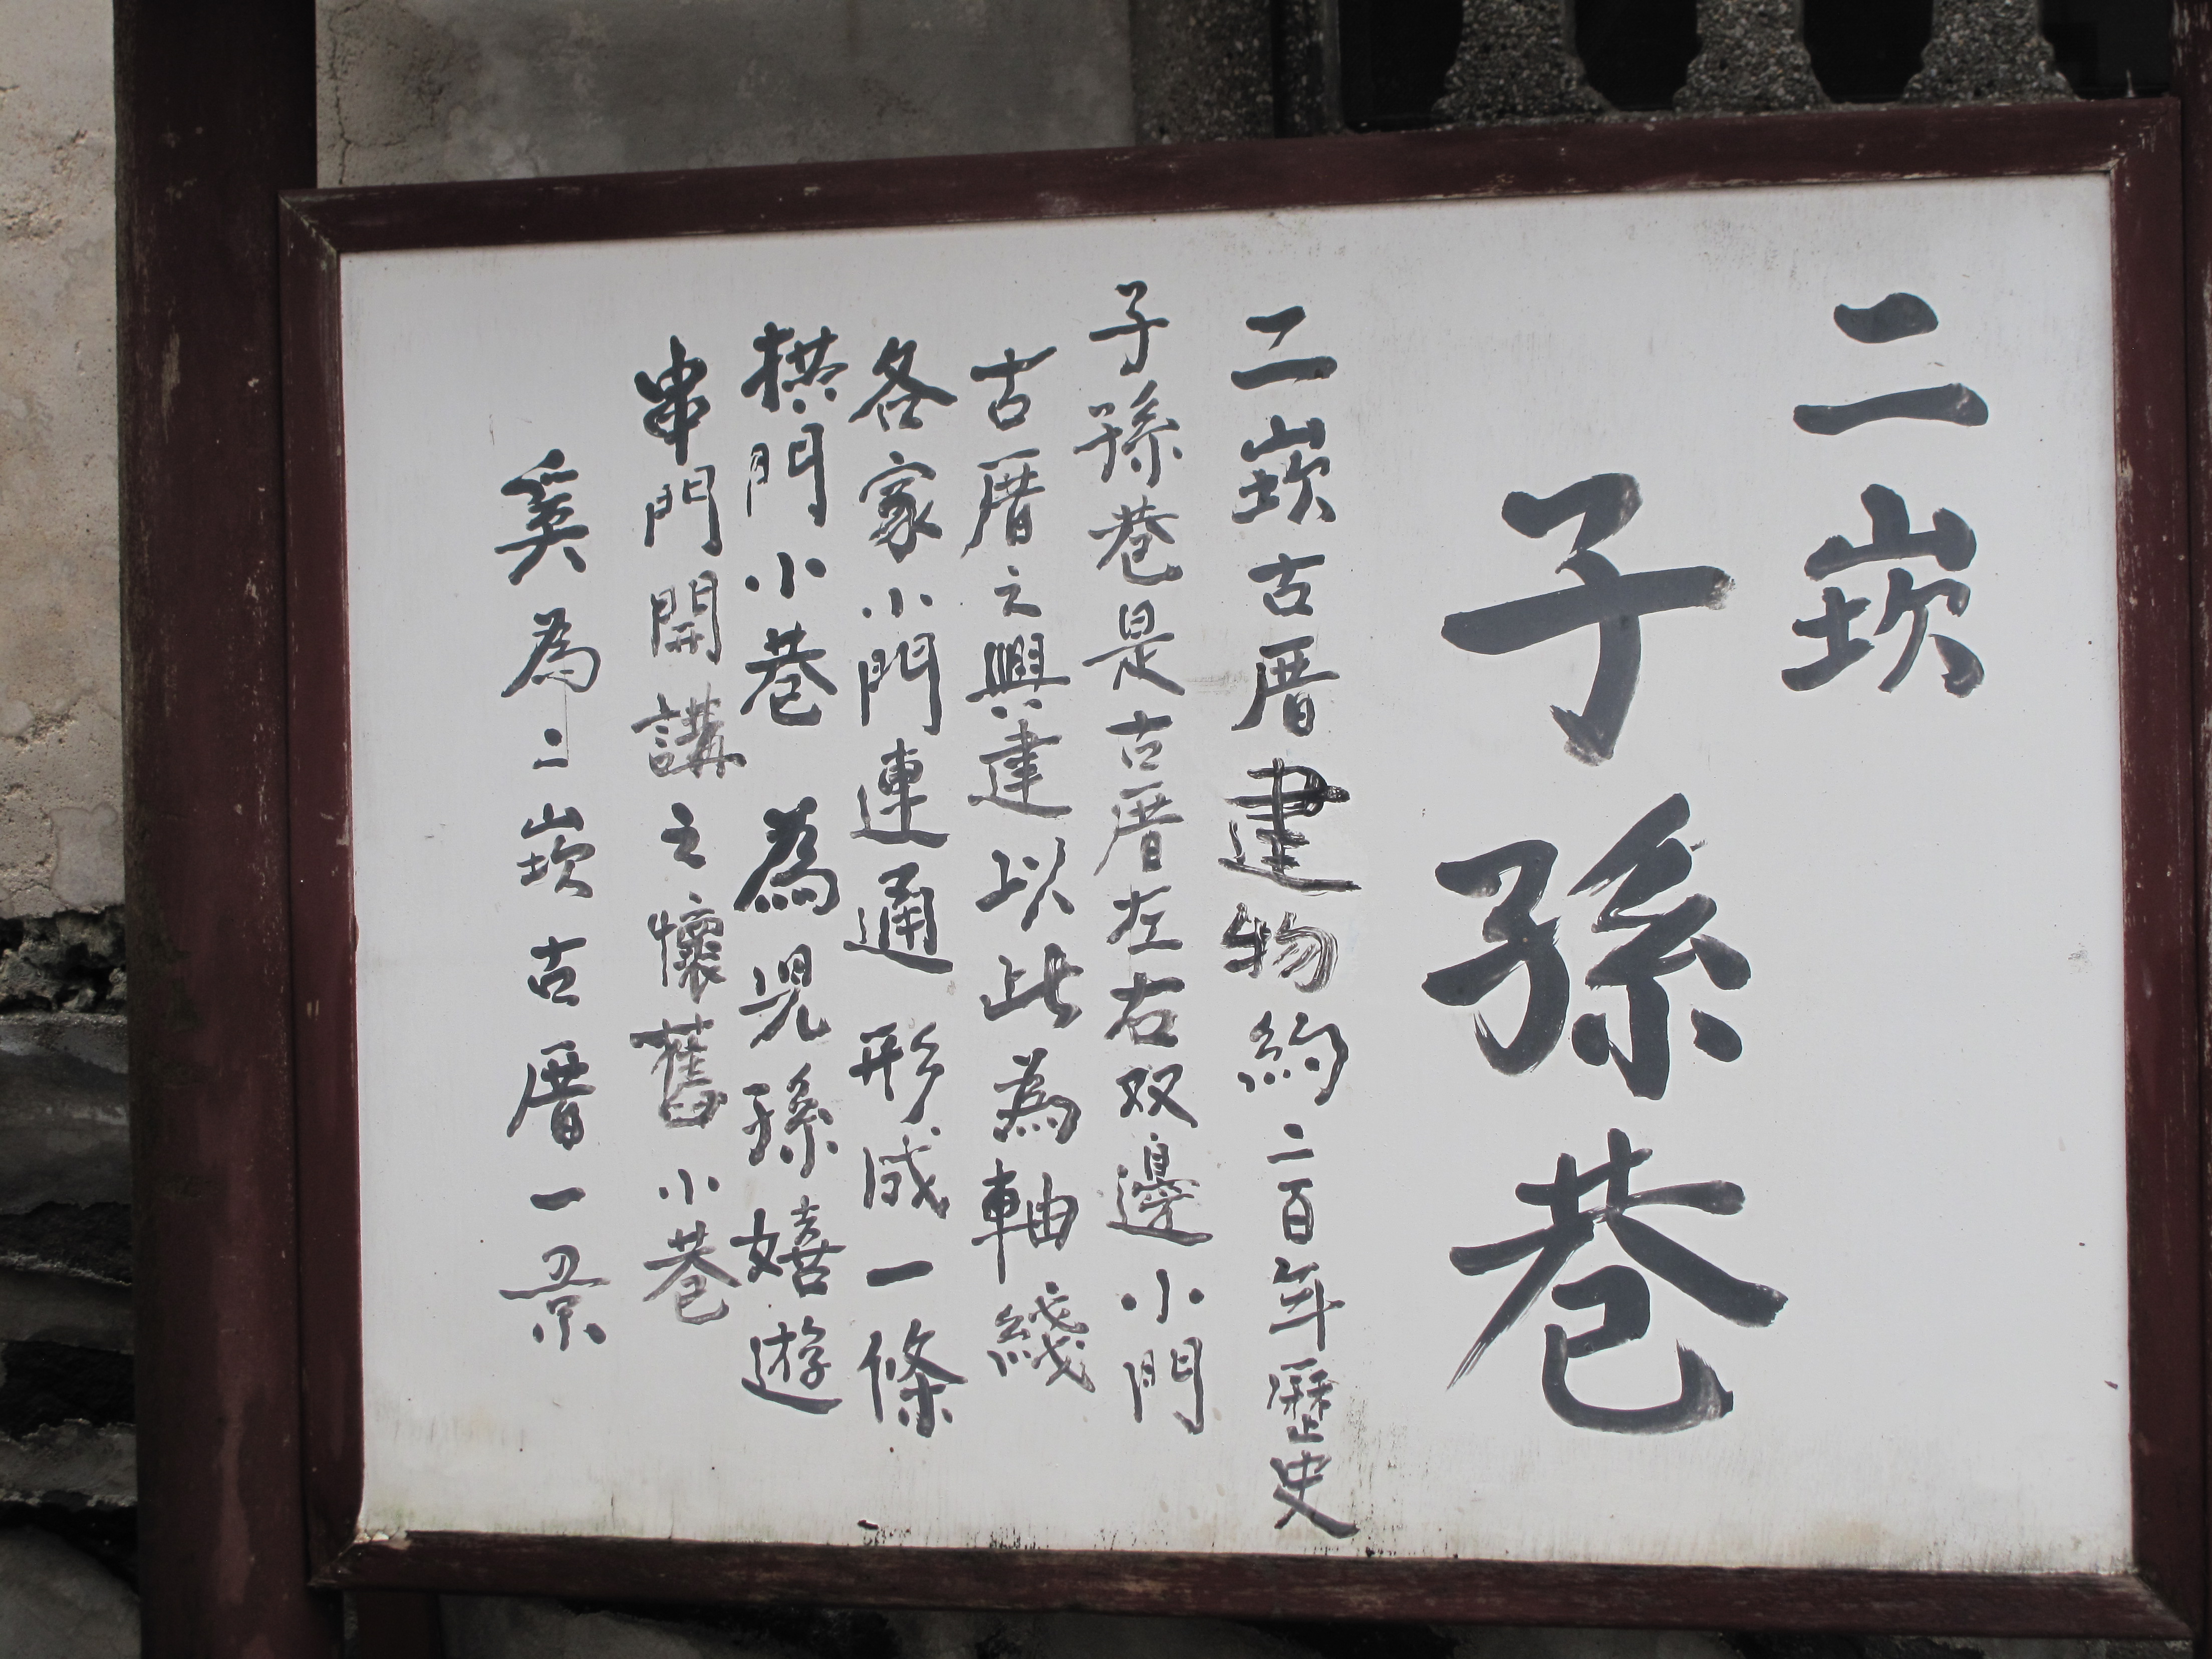 二崁
子孫巷
二崁古厝建物約二百年歷史
子孫巷是古厝左右双邊小門
古厝之興建以此為軸綫
各家小門連通形成一條
横門小巷為兒孫嬉遊
串門開講之懷舊小巷
奚為二崁古厝一景